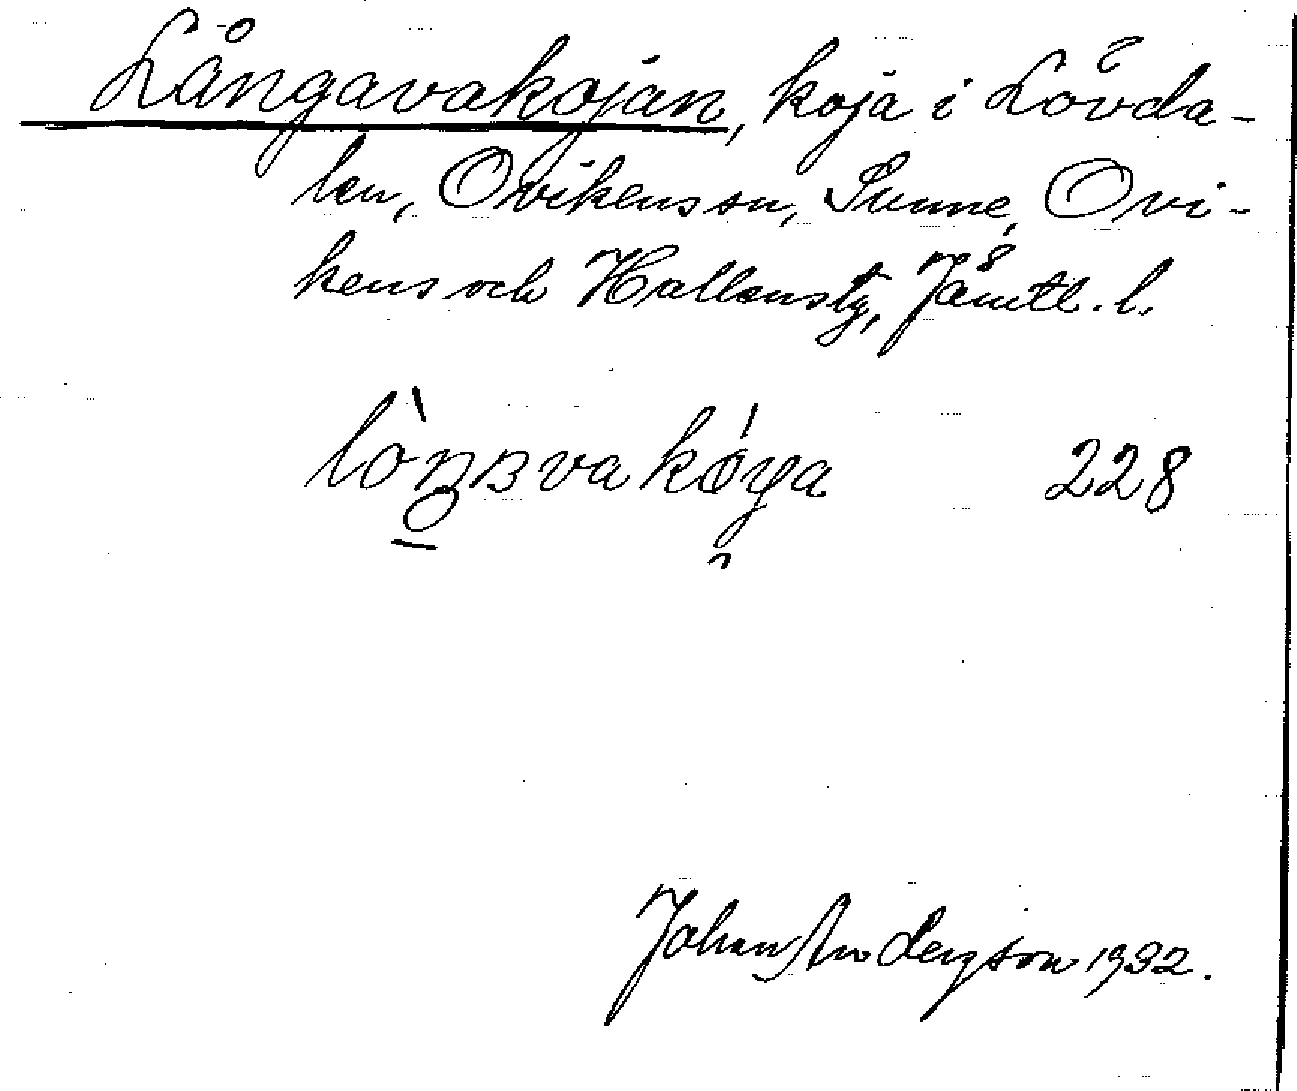 Långavakojan, koja i Lövda-
len, Ovikens sn, Sunne, Ovi-
kens och Hallens tg, Jämtl. l.
228
Johan Anderson 1932.